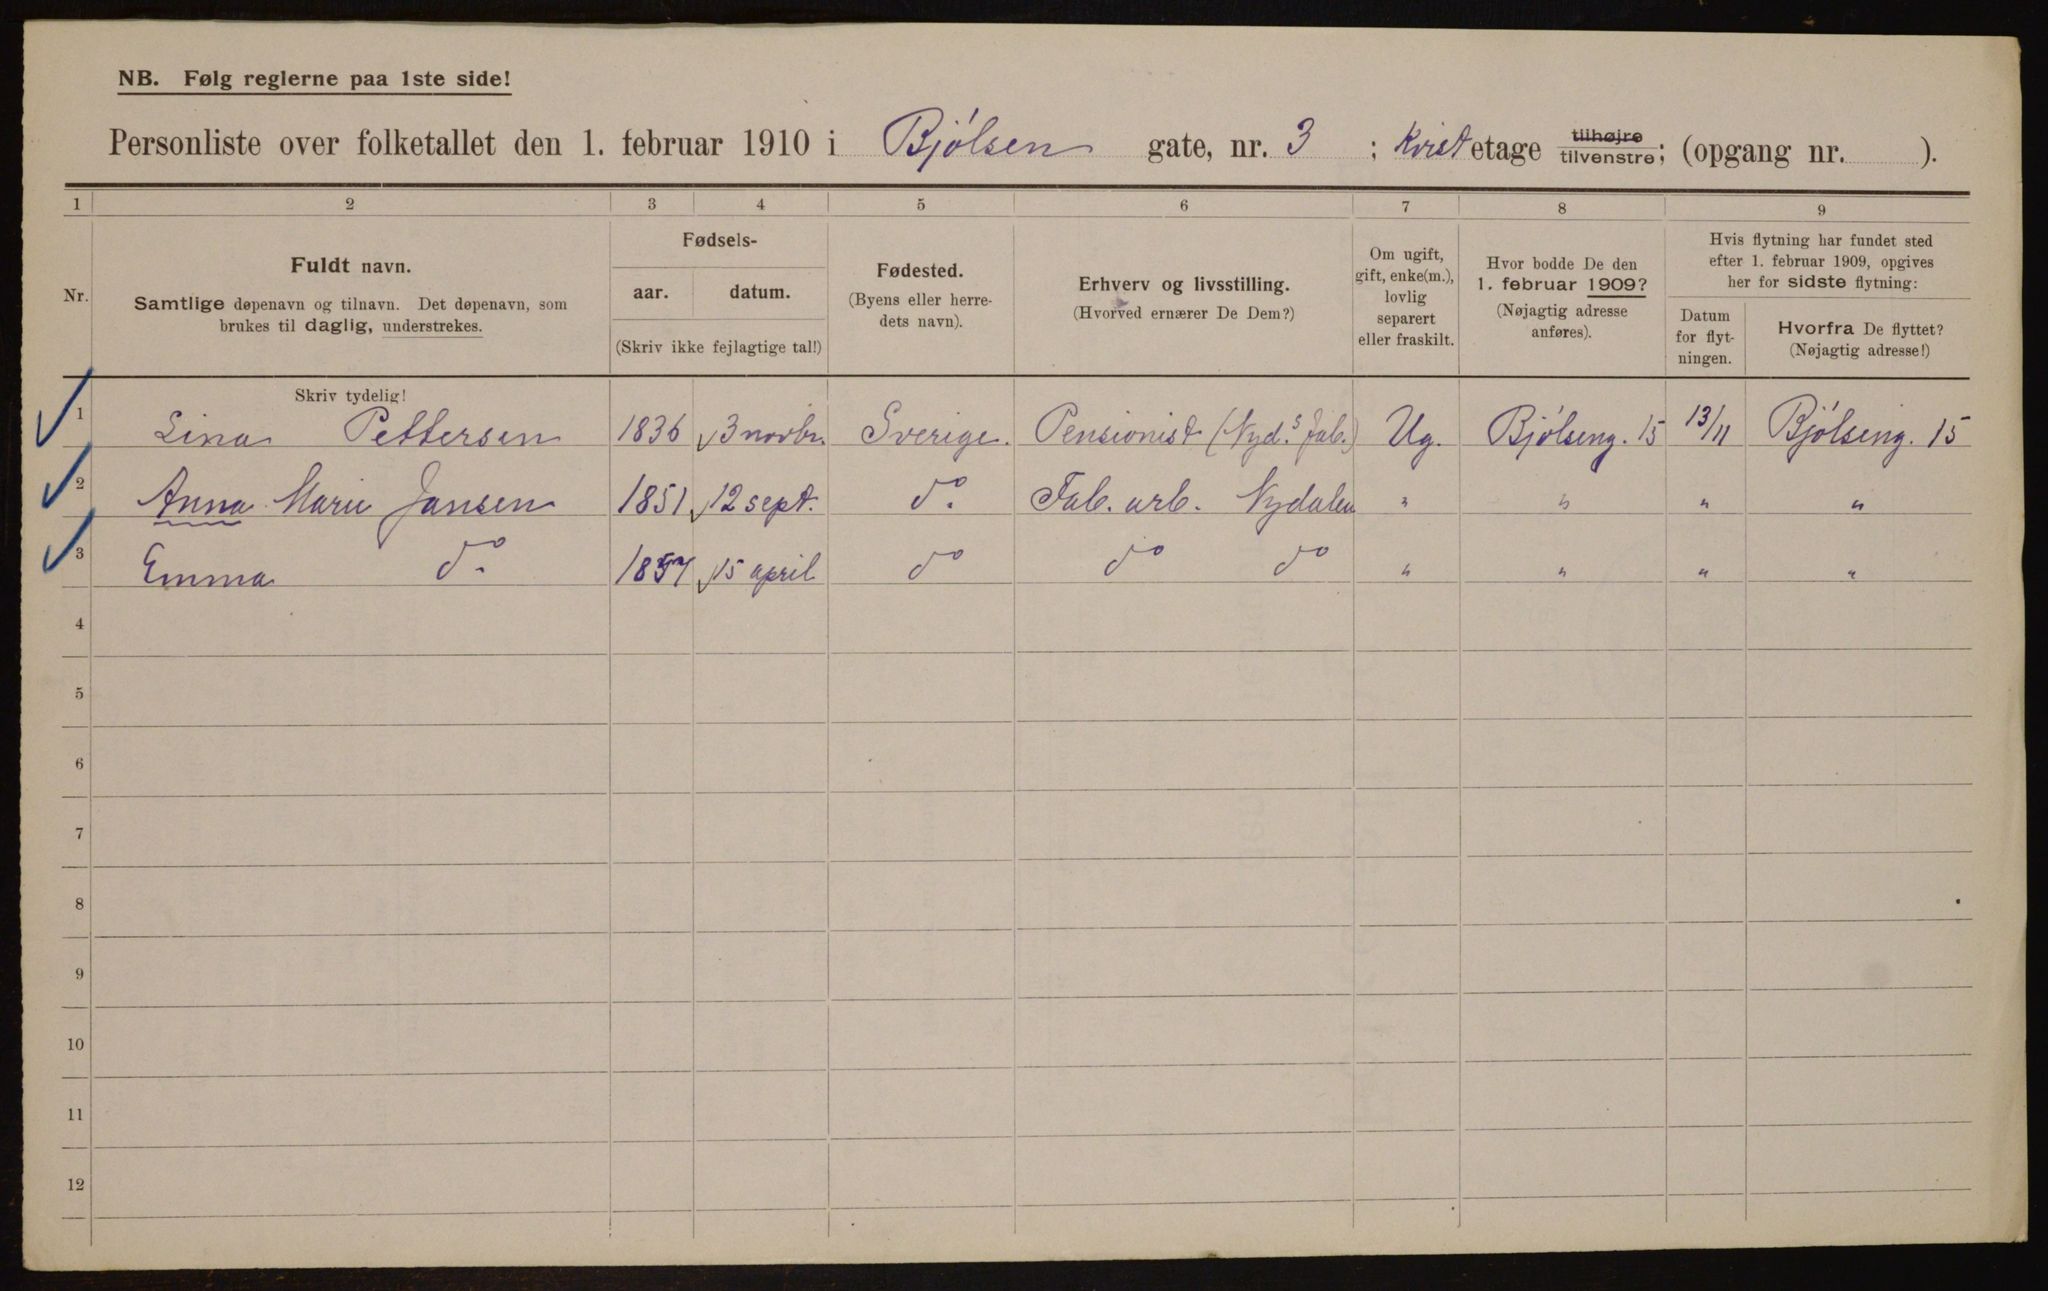 NB. Følg reglerne paa 1ste side!
Personliste over folketallet den 1. februar 1910 i Bjólsen gate, nr. 3 ; Kvist etage tilhøjre tilvenstre; (opgang nr. ).
1 2 3 4 5 6 7 8 9
Nr.
Fuldt navn.
Samtlige døpenavn og tilnavn. Det døpenavn, som
brukes til daglig, understrekes.
Fødsels-
aar. datum.
(Skriv ikke fejlagtige tal!)
Fødested.
(Byens eller herre-
dets navn).
Erhverv og livsstilling.
(Hvorved ernærer De Dem?)
Om ugift,
gift, enke(m.),
lovlig
separert
eller fraskilt.
Hvor bodde De den
1. februar 1909?
(Nøjagtig adresse
anføres).
Hvis flytning har fundet sted
efter 1. februar 1909, opgives
her for sidste flytning:
Datum
for flyt-
ningen.
Hvorfra De flyttet?
(Nøjagtig adresse!)
Skriv tydelig!
1 Lina Pettersen 1836 3 novbr. Sverige. Pensionist (Nyd.s Fab.) Ug. Bjólseng. 15 13/11 Bjólseng. 15
2 Anna Marie Jansen 1851 12 sept. do. Fab. arb. Nydalen " " " "
3 Emma do. 1857 15 april do do do " " " "
4
5
6
7
8
9
10
11
12